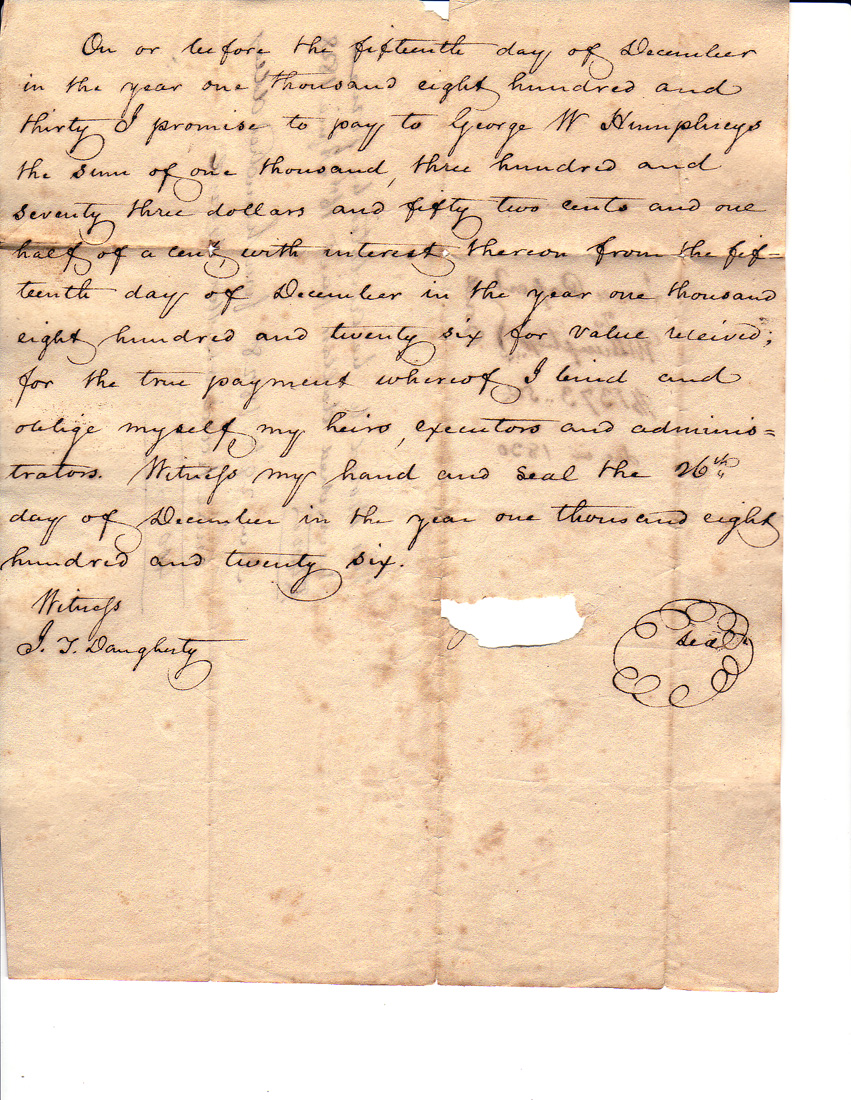 On or before the fifteenth day of December
in the year one thousand eight hundred and
thirty I promise to pay to George W Humphreys
the sum of one thousand, three hundred and
seventy three dollars and fifty two cents and one
half of a cent, with interest thereon from the fif=
teenth day of December in the year one thousand
eight hundred and twenty six for value received;
for the true payment whereof I bind and
oblige myself, my heirs, executors and adminis=
trators. Witness my hand and seal the 26th
day of December in the year one thousand eight
hundred and twenty six.
Witness
J. T. Daugherty
Seal